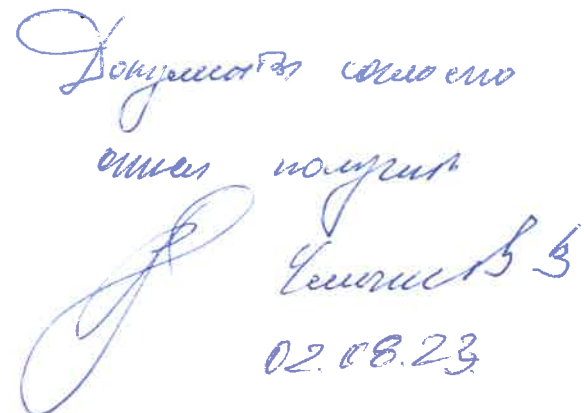 Документы согласно
описи получил
02.08.23